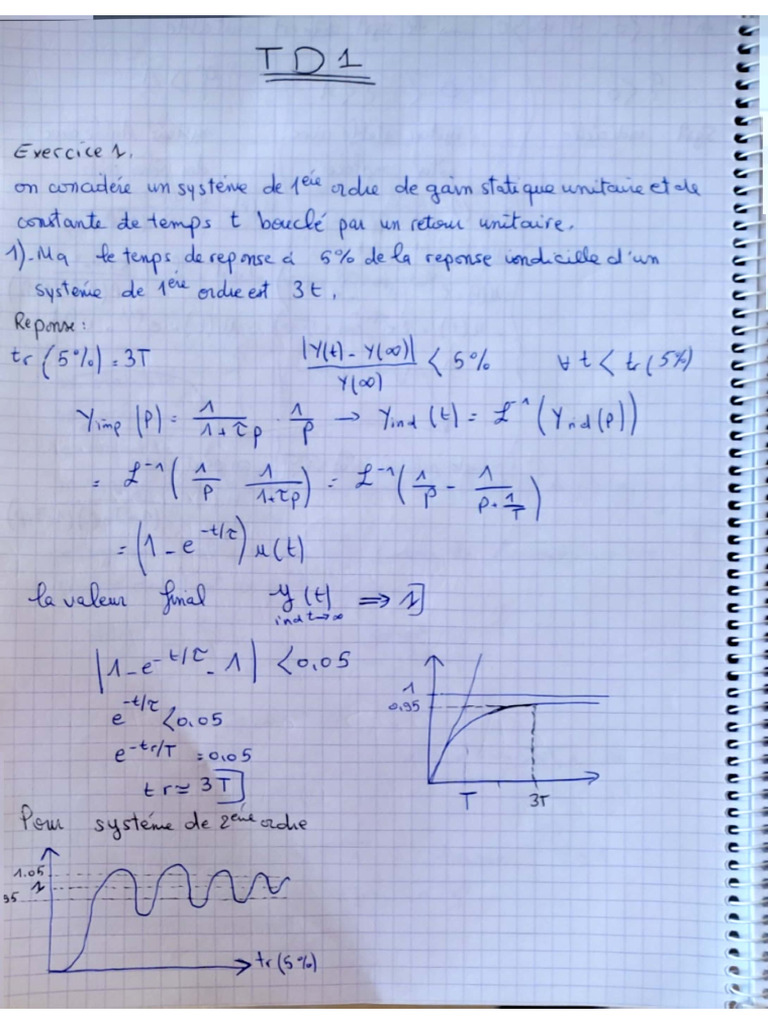 TD1
Exercice 1.
on concidére un systéme de 1ére ordre de gain statique unitaire et de
constante de temps t bouclé par un retour unitaire.
1)-Mq le temps de reponse á 5% de la reponse iondicielle d'un
systeme de 1ére ordre est 3t.
Reponse:
tr(5%) = 3T |Y(t) - Y(∞)| / Y(∞) < 5% ∀t < tr(5%)
Yimp(P) = 1/(1+τp) · 1/P → Yind(t) = ℒ⁻¹(Yind(p))
= ℒ⁻¹(1/P 1/(1+τp)) = ℒ⁻¹(1/P - 1/(P+1/T))
= (1 - e^(-t/τ)) u(t)
la valeur final y(t) ind t→∞ ⇒ 1]
|1 - e^(-t/τ) - 1| < 0,05
e^(-t/τ) < 0,05
e^(-tr/T) = 0,05
tr ≃ 3T]
1
0,95
T 3T
Pour systéme de 2éme ordre
1.05
1
95
tr(5%)